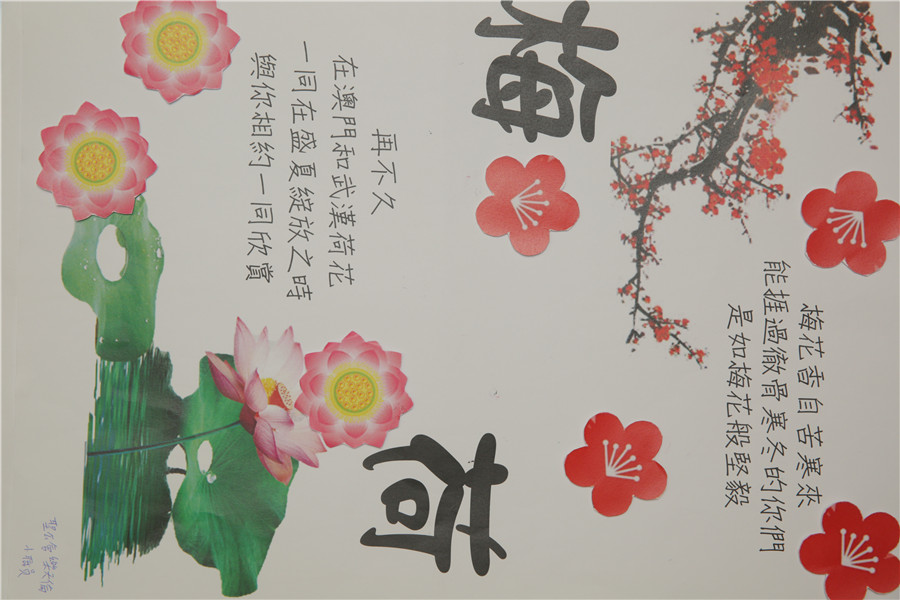 梅花香自苦寒來
能捱過徹骨寒冬的你們
是如梅花般堅毅
梅
荷
再不久
在澳門和武漢荷花
一同在盛夏綻放之時
與你相約一同欣賞
聖公會樂天倫
職員